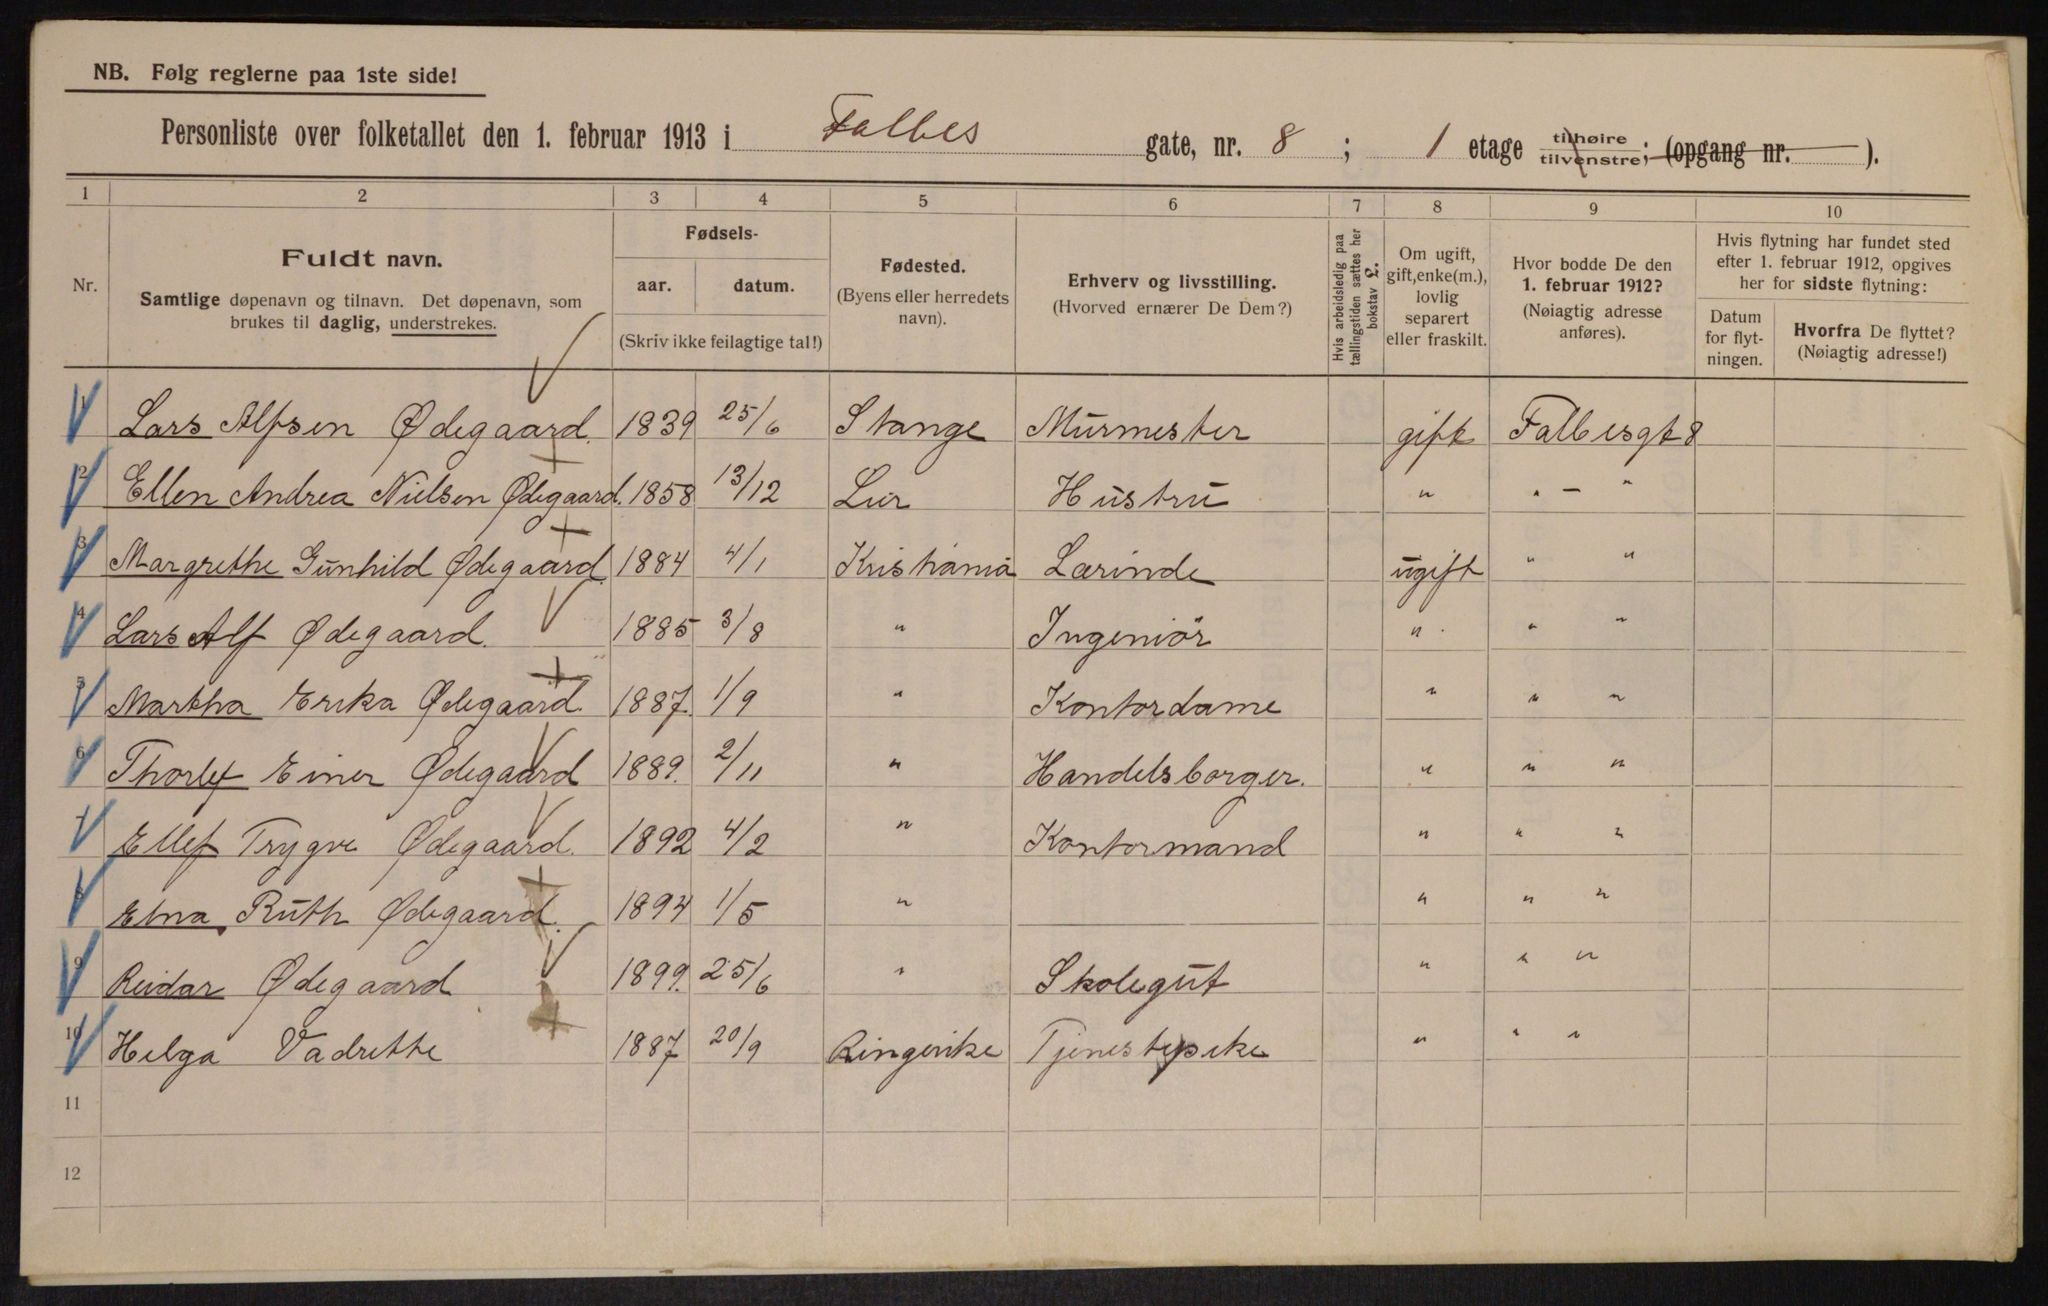 NB. Følg reglerne paa 1ste side!
Personliste over folketallet den 1. februar 1913 i Falbes gate, nr. 8 ; 1 etage tilhøire tilvenstre; (opgang nr. ).
1 2 3 4 5 6 7 8 9 10
Nr.
Fuldt navn.
Samtlige døpenavn og tilnavn. Det døpenavn, som
brukes til daglig, understrekes.
Fødsels-
aar. datum.
(Skriv ikke feilagtige tal!)
Fødested.
(Byens eller herredets
navn).
Erhverv og livsstilling.
(Hvorved ernærer De Dem?)
Hvis arbeidsledig paa
tællingstiden sættes her
bokstav L.
Om ugift,
gift, enke(m.),
lovlig
separert
eller fraskilt.
Hvor bodde De den
1. februar 1912?
(Nøiagtig adresse
anføres).
Hvis flytning har fundet sted
efter 1. februar 1912, opgives
her for sidste flytning:
Datum
for flyt-
ningen.
Hvorfra De flyttet?
(Nøiagtig adresse!)
1 Lars Alfsen Ødegaard. 1839 25/6 Stange Murmester gift Falbesgt 8
2 Ellen Andrea Nielsen Ødegaard. 1858 13/12 Lur Hustru " " — "
3 Margrethe Gunhild Ødegaard. 1884 4/1 Kristiania Lærinde ugift " "
4 Lars Alf Ødegaard. 1885 3/8 " Ingeniör " " "
5 Martha Erika Ødegaard. 1887. 1/9 " Kontordame " " "
6 Thorlef Einer Ødegaard 1889. 2/11 " Handelsborger. " " "
7 Ellef Trygve Ødegaard. 1892 4/2 " Kontormand " " "
8 Etna Ruth Ødegaard. 1894 1/5 " " " "
9 Reidar Ødegaard 1899. 25/6 " Skolegut " " "
10 Helga Vadrette 1887 20/9 Ringerike Tjenestepike " " "
11
12